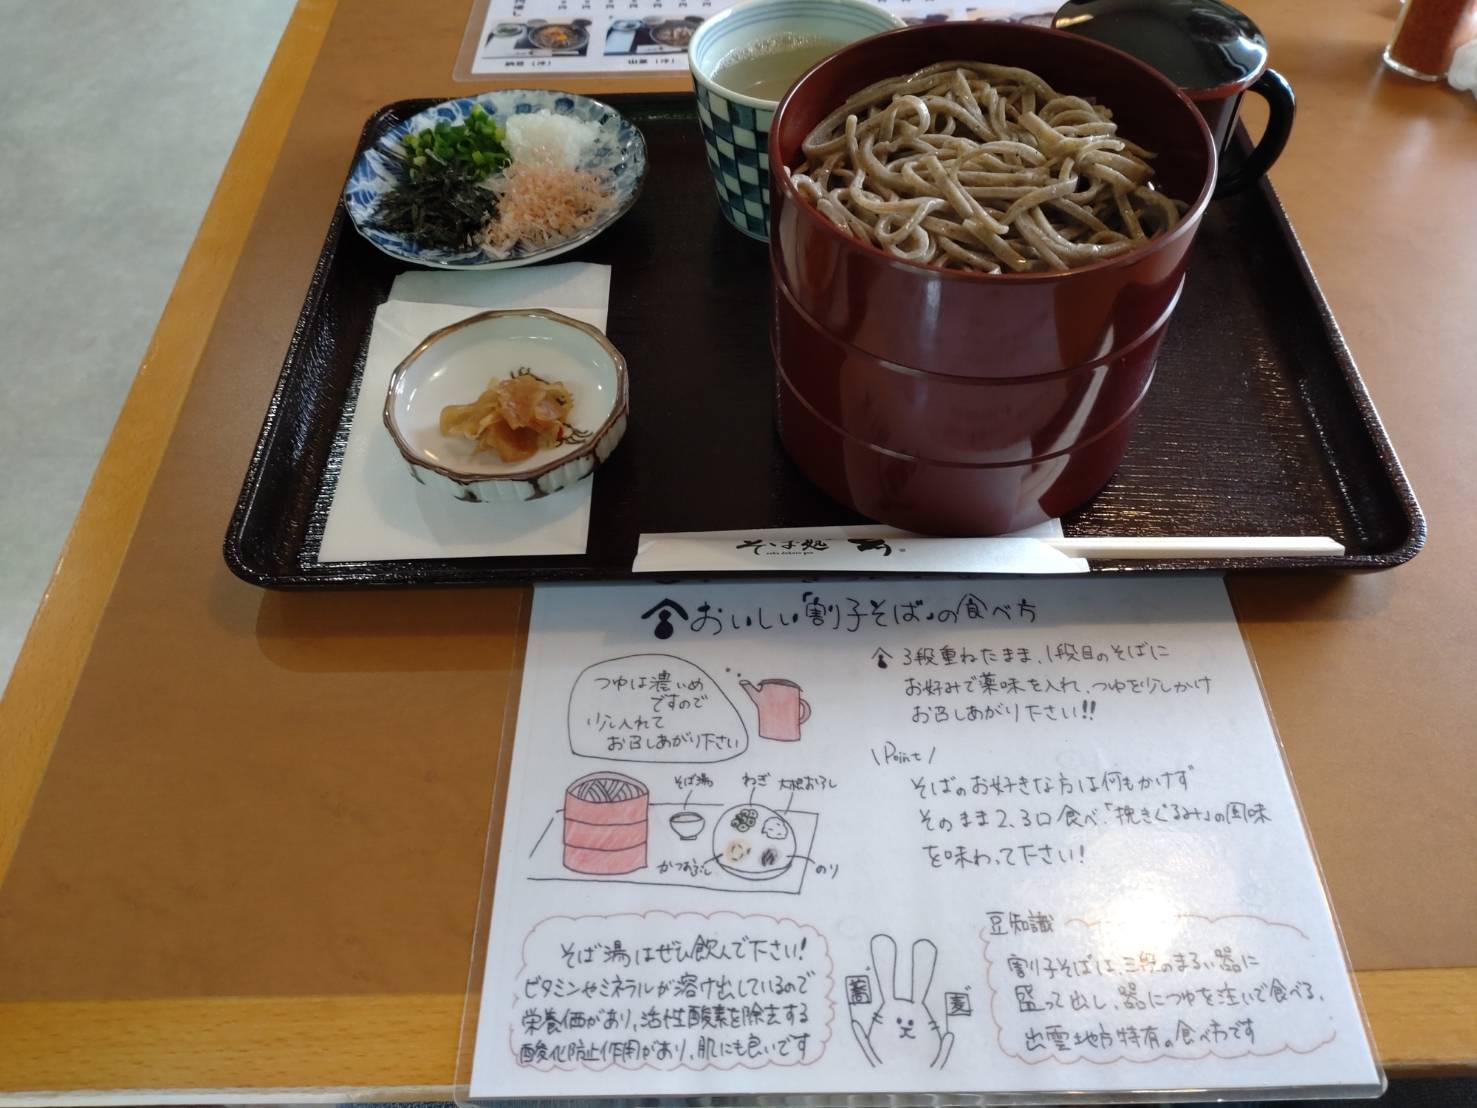 そば処
おいしい「割子そば」の食べ方
つゆは濃いめ
ですので
少し入れて
お召しあがり下さい
3段重ねたまま、1段目のそばに
お好みで薬味を入れ、つゆを少しかけ
お召しあがり下さい!!
\Point/
そばのお好きな方は何もかけず
そのまま2、3口食べ、「挽きぐるみ」の風味
を味わって下さい!
そば湯
ねぎ
大根おろし
かつおぶし
のり
そば湯はぜひ飲んで下さい!
ビタミンやミネラルが溶け出しているので
栄養価があり、活性酸素を除去する
酸化防止作用があり、肌にも良いです
蕎
麦
豆知識
割子そばは、三段のまるい器に
盛って出し、器につゆを注いで食べる、
出雲地方特有の食べ方です